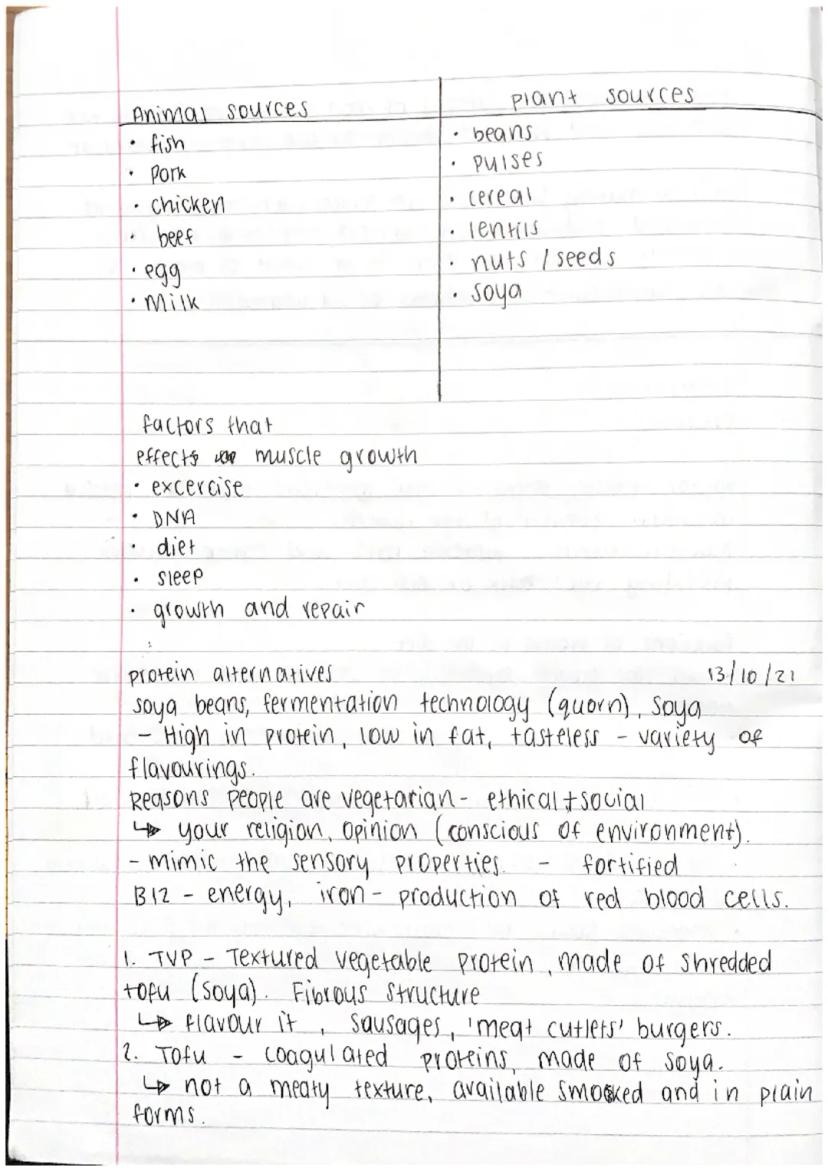 Animal sources
• fish
• Pork
• chicken
• beef
• egg
• Milk
Plant sources
• beans
• Pulses
• cereal
• lentils
• nuts / seeds
• Soya
factors that
effects muscle growth
• excercise
• DNA
• diet
• sleep
• growth and repair
protein alternatives 13/10/21
soya beans, fermentation technology (quorn), Soya
- High in protein, low in fat, tasteless - variety of
flavourings.
Reasons people are vegetarian - ethical + social
↳ your religion, opinion (conscious of environment).
- mimic the sensory properties. - fortified
B12 - energy, iron - production of red blood cells.
1. TVP - Textured vegetable protein, made of shredded
tofu (soya). Fibrous structure
↳ flavour it, sausages, 'meat cutlets' burgers.
2. Tofu - coagulated proteins, made of soya.
↳ not a meaty texture, available smoked and in plain
forms.